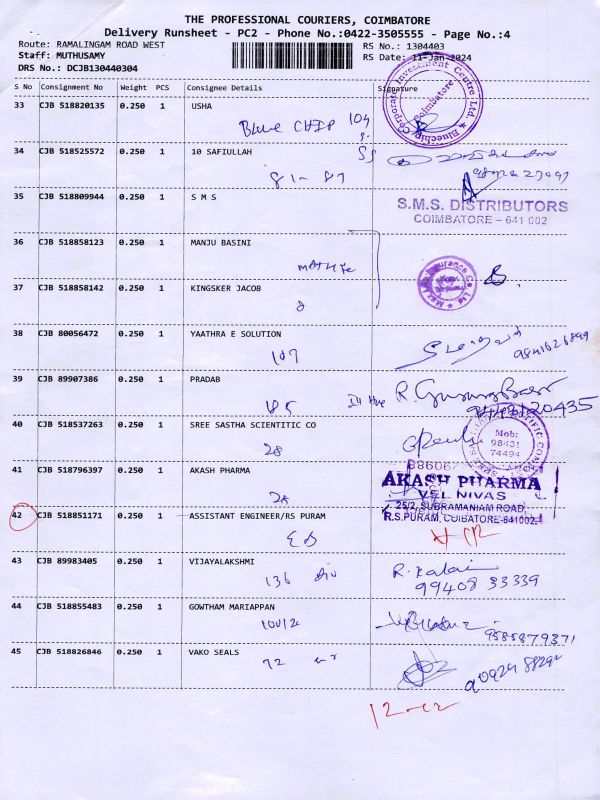 THE PROFESSIONAL COURIERS, COIMBATORE
Delivery Runsheet - PC2 - Phone No.:0422-3505555 - Page No.:4
Route: RAMALINGAM ROAD WEST RS No.: 1304403
Staff: MUTHUSAMY RS Date: 11-Jan-2024
DRS No.: DCJB130440304
S No Consignment No Weight PCS Consignee Details Signature
33 CJB 518820135 0.250 1 USHA
Blue CHIP 104
Corporate Investment Centre Ltd. Bluechip Coimbatore
34 CJB 518525572 0.250 1 10 SAFIULLAH
81-87
35 CJB 518809944 0.250 1 S M S
S.M.S. DISTRIBUTORS
COIMBATORE - 641 002
36 CJB 518858123 0.250 1 MANJU BASINI
37 CJB 518858142 0.250 1 KINGSKER JACOB
38 CJB 80056472 0.250 1 YAATHRA E SOLUTION
107
39 CJB 89907386 0.250 1 PRADAB
40 CJB 518537263 0.250 1 SREE SASTHA SCIENTITIC CO
28
Mob:
98431
74494
41 CJB 518796397 0.250 1 AKASH PHARMA
AKASH PHARMA
VEL NIVAS
25/2, SUBRAMANIAM ROAD,
R.S.PURAM, COIBATORE-641002.
42 CJB 518851171 0.250 1 ASSISTANT ENGINEER/RS PURAM
EB
43 CJB 89983405 0.250 1 VIJAYALAKSHMI
136
R. Kalai
99408 33339
44 CJB 518855483 0.250 1 GOWTHAM MARIAPPAN
9585879371
45 CJB 518826846 0.250 1 VAKO SEALS
72